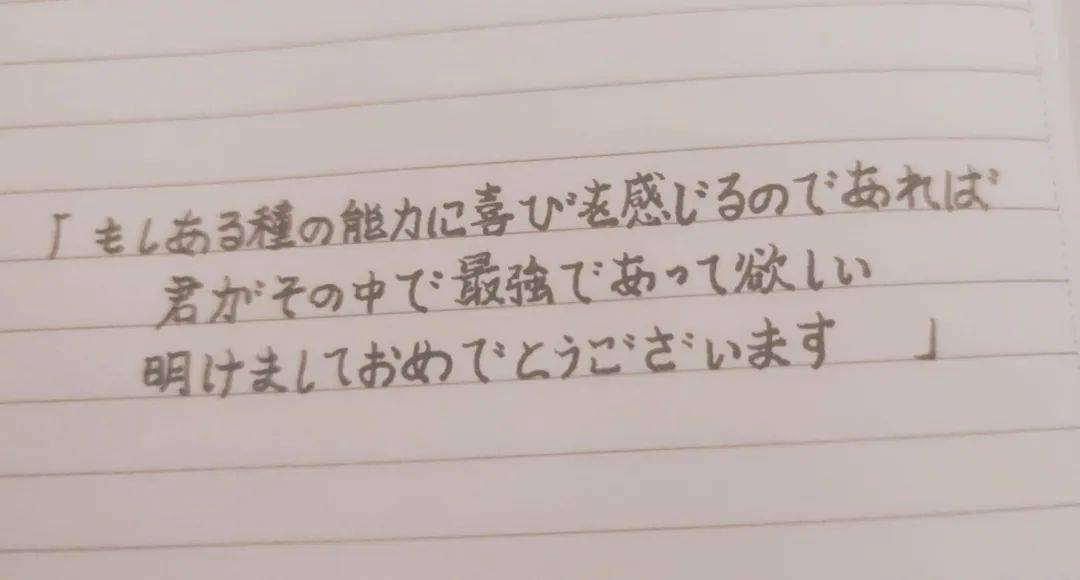 「もしある種の能力に喜びを感じるのであれば
君がその中で最強であって欲しい
明けましておめでとうございます 」